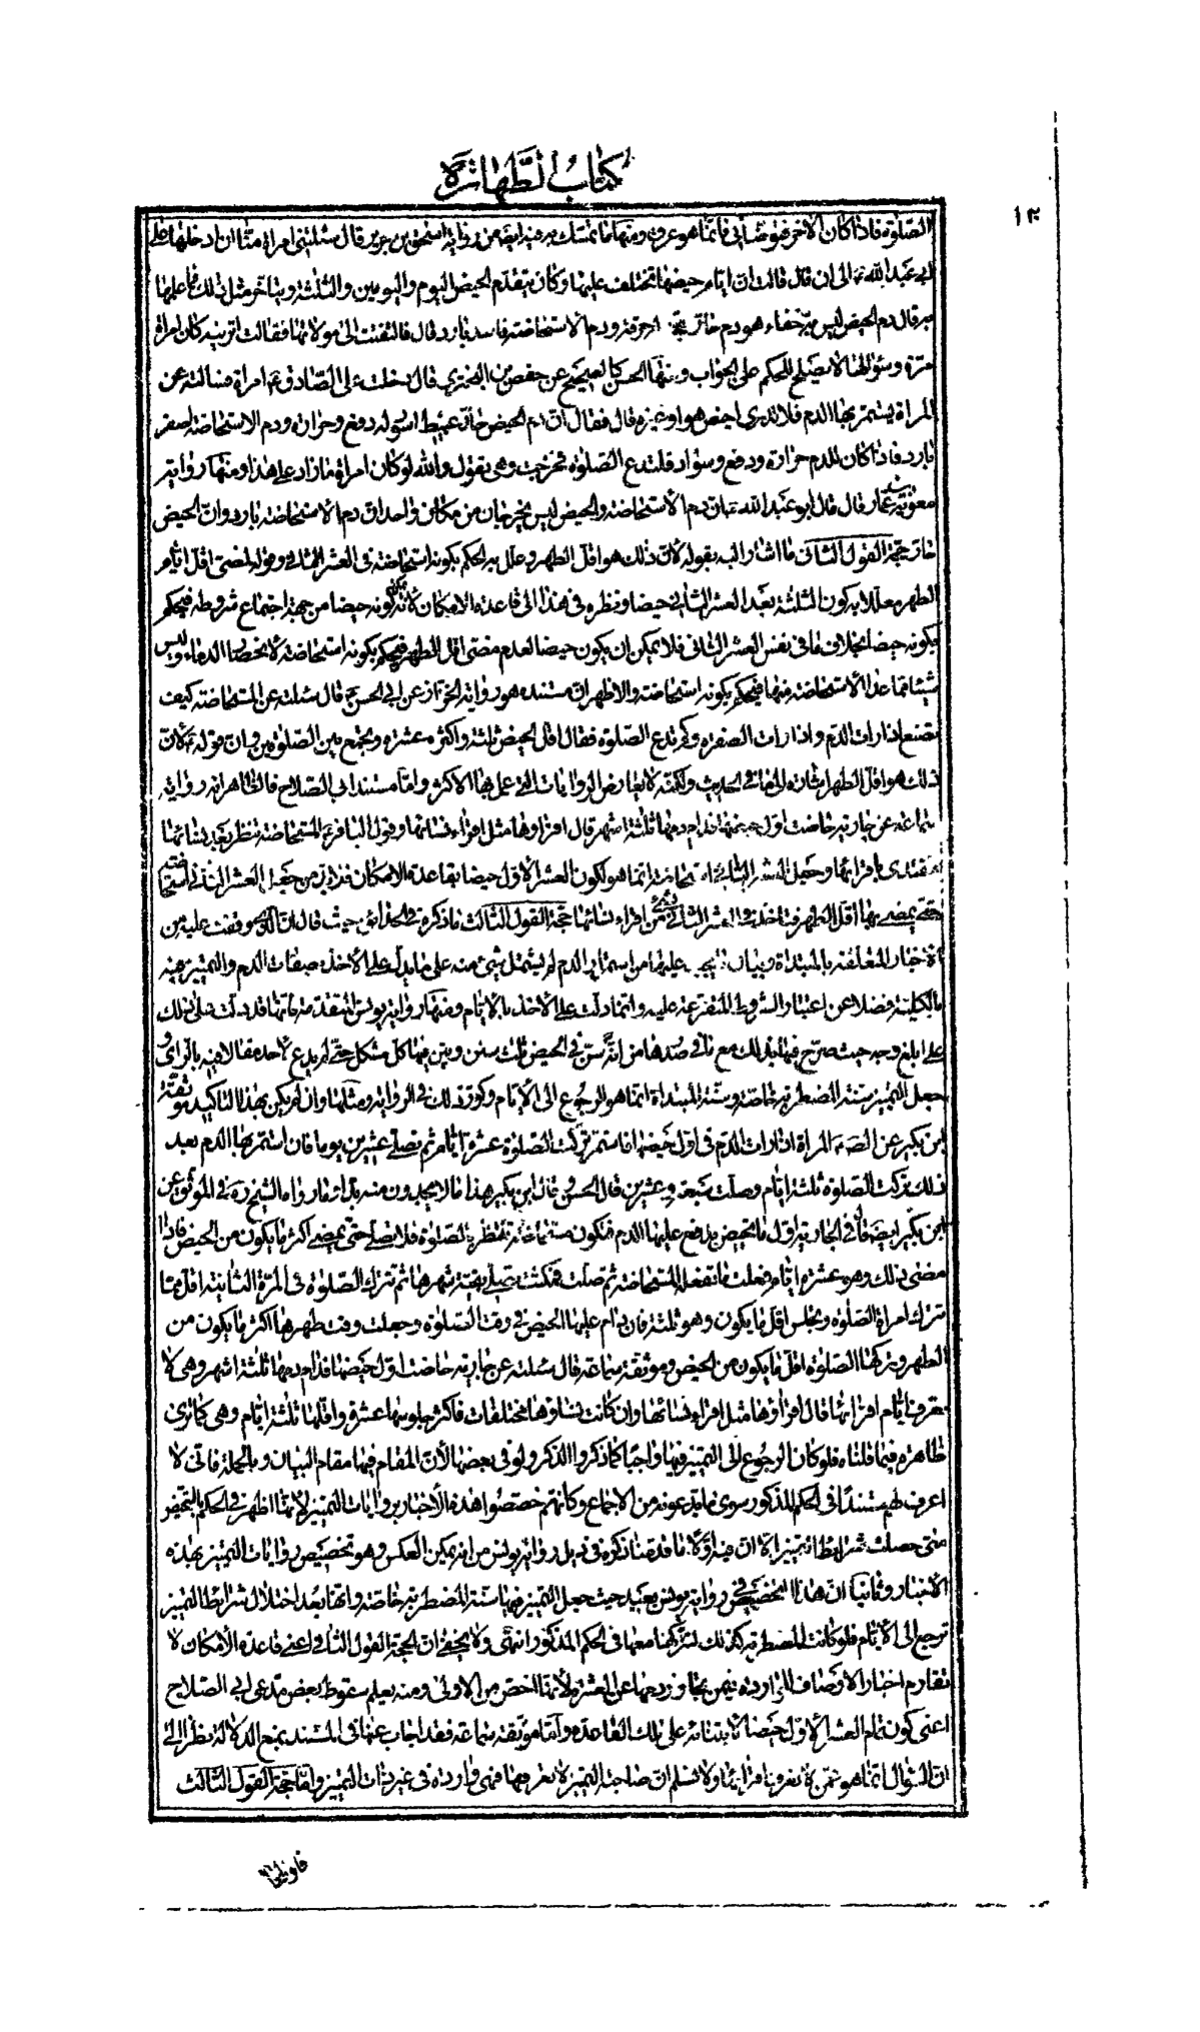 كتاب الطهارة
١٢
الصلوة فاذا كان الاخر فتوضائى فانما هو عرق ومنها ما تمسك به فيه ايضا من رواية اسحق بن جرير قال سئلتنى امراة منا ان ادخلها على
ابى عبد الله ع الى ان قال قالت ان ايام حيضها تختلف عليها وكان يتقدم الحيض اليوم واليومين والثلثة ويتاخر مثل ذلك فما علمها
به قال دم الحيض ليس به خفاء هو دم حار تجد له حرقة ودم الاستحاضة فاسد بارد قال فالتفتت الى مولاتها فقالت اترينه كان امراة
مرة وسؤالها لا يصلح للحكم على الجواب ومنها الحسن كالصحيح عن حفص بن البخترى قال دخلت على الصادق ع امراة فسالته عن
المراة يستمر بها الدم فلا تدرى احيض هو او غيره قال فقال ان دم الحيض حار عبيط اسود له دفع وحرارة ودم الاستحاضة اصفر
بارد فاذا كان للدم حرارة ودفع وسواد فلتدع الصلوة فخرجت وهى تقول والله لو كان امراة ما زاد على هذا ومنها رواية
معوية بن عمار قال قال ابو عبد الله ع ان دم الاستحاضة والحيض ليس يخرجان من مكان واحد ان دم الاستحاضة بارد وان الحيض
حار حجة القول الثانى ما اشار اليه بقوله لان ذلك هو اقل الطهر وعلل به الحكم بكونه استحاضة فى العشر الثانى وقوله لمضى اقل ايام
الطهر معللا به كون الثلثة بعد العشر الثانى حيضا ونظره فى هذا الى قاعدة الامكان لانه يمكن كونه حيضا من جهة اجتماع شروطه فيحكم
بكونه حيضا بخلاف ما فى نفس العشر الثانى فلا يمكن ان يكون حيضا لعدم مضى اقل الطهر فيحكم بكونه استحاضة لانحصار الدماء وليس
شيئا مما عدا الاستحاضة منها فيحكم بكونه استحاضة والاظهر ان مستنده هو رواية الخزاز عن ابى الحسن ع قال سئلته عن المستحاضة كيف
تصنع اذا رات الدم واذا رات الصفرة وكم تدع الصلوة فقال اقل الحيض ثلثة واكثره عشرة وتجمع بين الصلوتين وان قوله لان
ذلك هو اقل الطهر اشارة الى ما فى الحديث ولكنه لا يعارض الروايات التى عمل بها الاكثر واما مستند ابى الصلاح فالظاهر انه رواية
سماعة عن جارية حاضت اول حيضها فدام دمها ثلثة اشهر قال اقراؤها مثل اقراء نسائها وقول الباقر ع المستحاضة تنظر بعض نسائها
فتقتدى باقرائها وجعل العشر الثانى استحاضة انما هو لكون العشر الاول حيضا بقاعدة الامكان فلا بد من جعل العشر الثانى استحاضة
حتى يمضى بها اقل الطهر فتاخذ فى العشر الثالث من اقراء نسائها حجة القول الثالث ما ذكره فى الحدائق حيث قال ان الذى وقفت عليه من
الاخبار المتعلقة بالمبتداة وبيان ما يجب عليها من استمرار الدم لم يشتمل شىء منه على ما يدل على الاخذ بصفات الدم والتمييز فيه
بالكلية فضلا عن اعتبار الشروط المتفرعة عليه وانما دلت على الاخذ بالايام ومنها رواية يونس المتقدمة فانها قد دلت على ذلك
على ابلغ وجه حيث صرح فيها بذلك مع ما فى صدرها من انه ص سن فى الحيض ثلث سنن وبين فيها كل مشكل حتى لم يدع لاحد مقالا فيه بالراى و
جعل التمييز سنة المضطربة خاصة وسنة المبتداة انما هو الرجوع الى الايام وكرر ذلك فى الرواية ومثلها وان لم يكن بهذا التاكيد موثقة
ابن بكير عن الص ع المراة اذا رات الدم فى اول حيضها فاستمر تركت الصلوة عشرة ايام ثم تصلى عشرين يوما فان استمر بها الدم بعد
ذلك تركت الصلوة ثلثة ايام وصلت سبعة وعشرين قال الحسن وقال ابن بكير هذا مما لا يجدون منه بدا ثم ما رواه الشيخ ره فى الموثق عن
ابن بكير ايضا قال فى الجارية اول ما تحيض يدفع عليها الدم فتكون مستحاضة انها تنتظر بالصلوة فلا تصلى حتى يمضى اكثر ما يكون من الحيض فاذا
مضى ذلك وهو عشرة ايام فعلت ما تفعله المستحاضة ثم صلت فمكثت تصلى بقية شهرها ثم تترك الصلوة فى المرة الثانية اقل ما
تترك امراة الصلوة وتجلس اقل ما يكون وهو ثلثة فان دام عليها الحيض فى وقت الصلوة وجعلت وقت طهرها اكثر ما يكون من
الطهر وتركها الصلوة اقل ما يكون من الحيض وموثقة سماعة قال سئلته عن جارية حاضت اول حيضها فدام دمها ثلثة اشهر وهى لا
تعرف ايام اقرائها قال اقراؤها مثل اقراء نسائها وان كانت نساؤها مختلفات فاكثر جلوسها عشرة واقلها ثلثة ايام وهى كما ترى
ظاهرة فيما قلناه فلو كان الرجوع الى التمييز فيها واجبا كما ذكروا الذكر ولو فى بعضها لان المقام فيها مقام البيان وبالجملة فانى لا
اعرف لهم مستندا فى الحكم المذكور سوى ما يدعونه من الاجماع وكانهم خصصوا هذه الاخبار بروايات التمييز لانها اظهر فى الحكم بالتحيض
متى حصلت شرائط التمييز الا ان فيه اولا ما قدمنا ذكره فى ذيل رواية يونس من انه يمكن العكس وهو تخصيص روايات التمييز بهذه
الاخبار وثانيا ان هذا التخصيص فى رواية يونس بعيد حيث جعل التمييز فيها سنة المضطربة خاصة وانها بعد اختلال شرائط التمييز
ترجع الى الايام فلو كانت المضطربة كذلك لشركها معها فى الحكم المذكور انتهى ولا يخفى ان الحجة القول الثانى اعنى قاعدة الامكان لا
تقاوم اخبار الاوصاف الواردة فيمن تجاوز دمها عن العشرة لانها اخص من الاولى ومنه يعلم سقوط بعض مدعى ابى الصلاح
اعنى كون تمام العشر الاول حيضا لابتنائه على تلك القاعدة واما موثقة سماعة فقد اجاب عنها فى المستند بمنع الدلالة نظرا الى
ان السؤال انما هو عمن لا تعرف اقرائها ولا نسلم ان صاحبة التمييز لا تعرفها فهى واردة فى غير ذات التمييز واما حجة القول الثالث